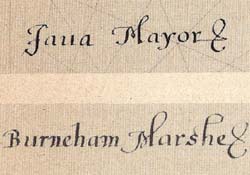 Jaua Mayor
Burneham Marshe